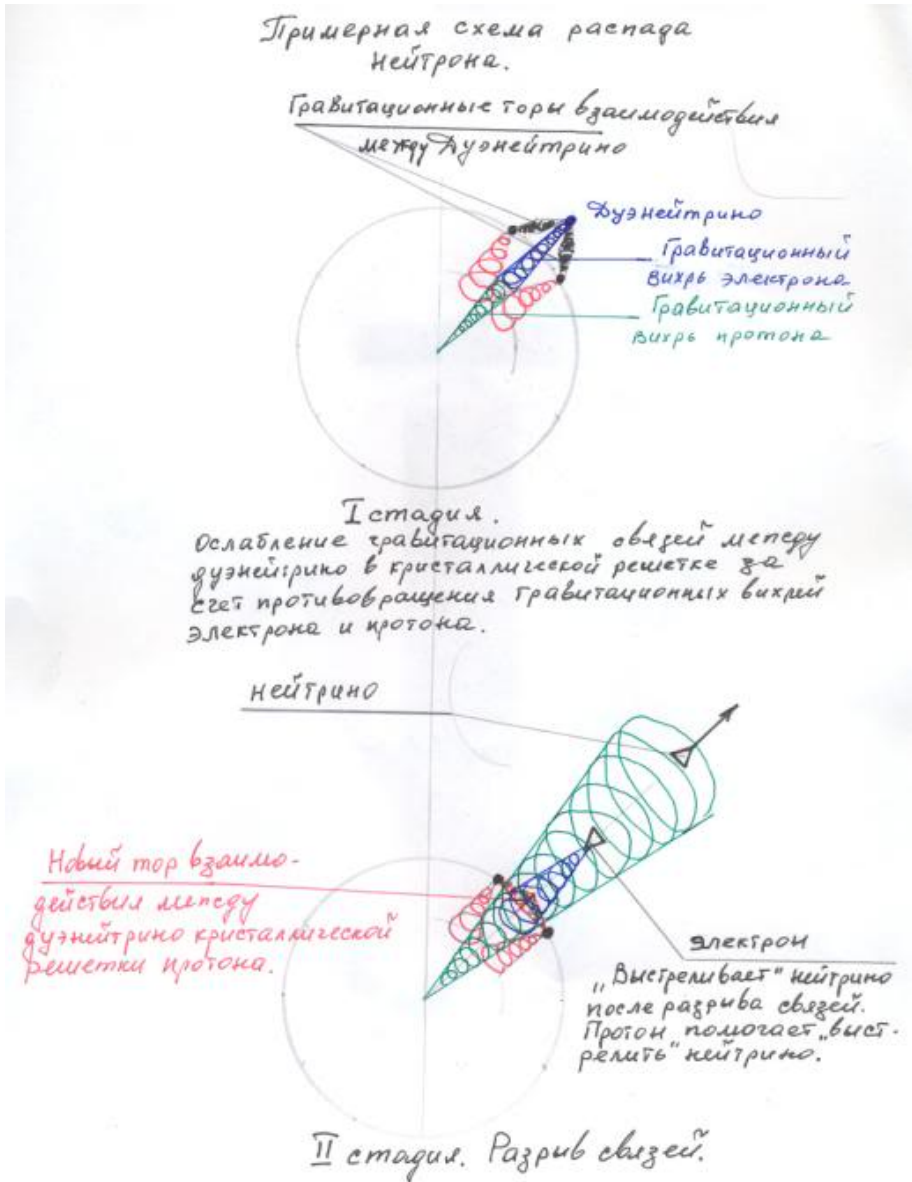 Примерная схема распада
нейтрона.
Гравитационные торы взаимодействия
между Дуэнейтрино
Дуэнейтрино
Гравитационный
вихрь электрона
Гравитационный
вихрь протона
I стадия.
Ослабление гравитационных связей между
дуэнейтрино в кристаллической решетке за
счет противовращения гравитационных вихрей
электрона и протона.
нейтрино
Новый тор взаимо-
действия между
дуэнейтрино кристаллической
решетки протона.
электрон
„Выстреливает" нейтрино
после разрыва связей.
Протон помогает „выст-
релить" нейтрино.
II стадия. Разрыв связей.